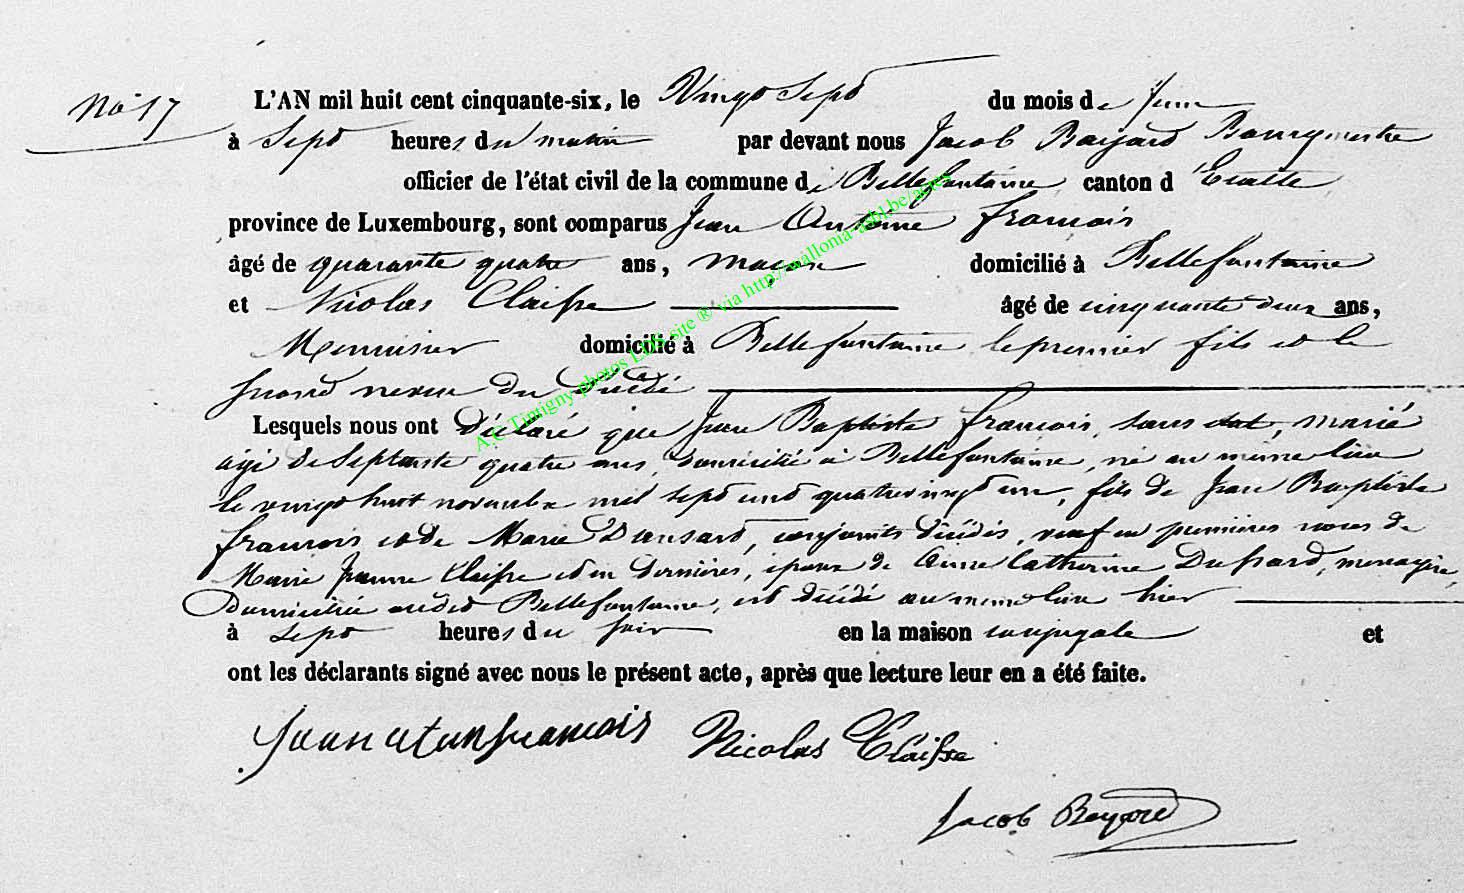 No 17
L'AN mil huit cent cinquante-six, le Vingt Sept du mois de Juin
à Sept heures du matin par devant nous Jacob Bayard Bourgmestre
officier de l'état civil de la commune de Bellefontaine canton d'Etalle
province de Luxembourg, sont comparus Jean Antoine francois
âgé de quarante quatre ans, maçon domicilié à Bellefontaine
et Nicolas Claisse âgé de cinquante deux ans,
Menuisier domicilié à Bellefontaine le premier fils et le
second neveu du Décédé
Lesquels nous ont déclaré que Jean Baptiste francois, sans etat, marié
agé de Septante quatre ans, domicilié à Bellefontaine, né au même lieu
le vingt huit novembre mil sept cent quatrevingt un, fils de Jean Baptiste
francois et de Marie Dansard, conjoints décédés, veuf en premières noces de
Marie Jeanne Claisse et en dernières, époux de Anne Catherine Dussard, menagère,
Domiciliée audit Bellefontaine, est décédé au même lieu hier
à Sept heures du soir en la maison conjugale et
ont les déclarants signé avec nous le présent acte, après que lecture leur en a été faite.
Nicolas Claisse
Jacob Bayard
A.C Tintigny photos LDS site ® via http://wallonia-asbl.be/actes